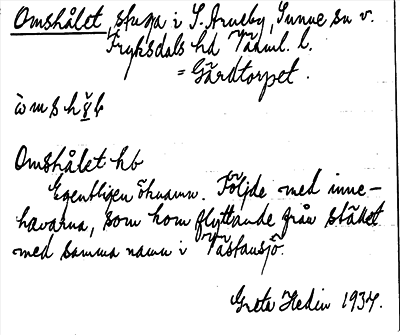 Omshålet, stuga i S. Arneby, Sunne sn v.
Fryksdals hd Värml. l.
= Gårdtorpet.
Omshålet hb
Egentligen öknamn. Följde med inne-
havarna, som kom flyttande från stället
med samma namn i Västansjö.
Greta Hedin 1937.